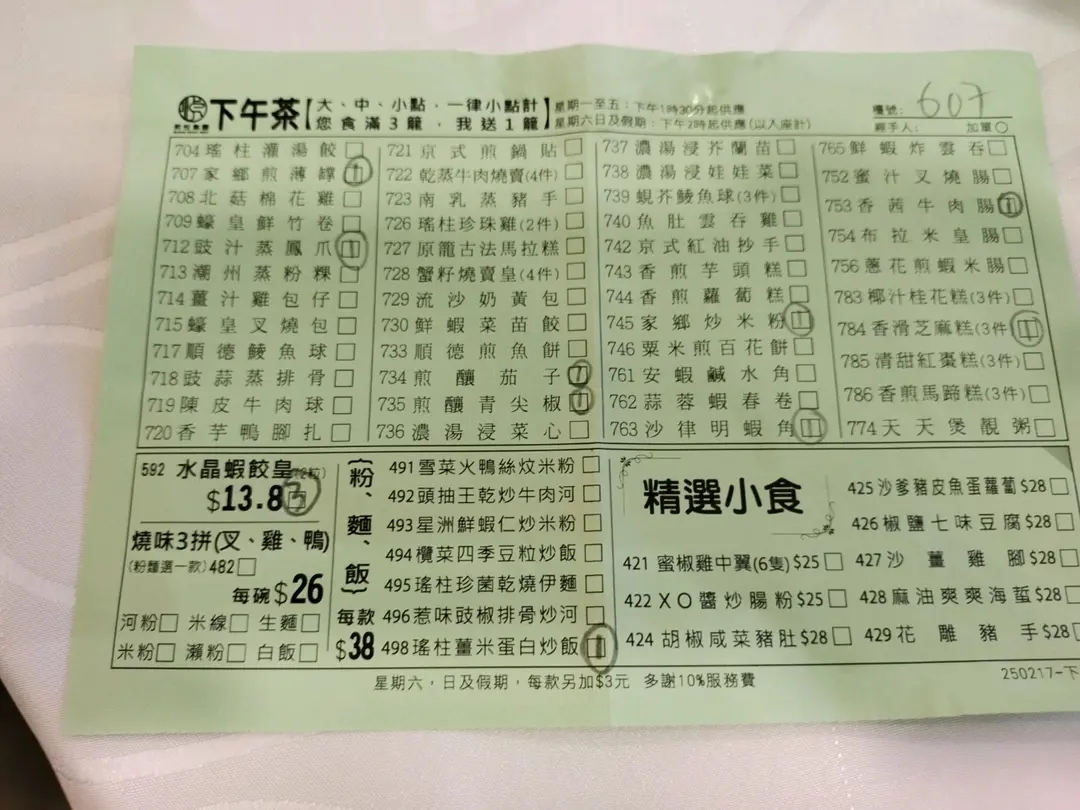 下午茶
【大、中、小點，一律小點計
您食滿3籠，我送1籠】
星期一至五：下午1時30分起供應
星期六日及假期：下午2時起供應(以入座計)
檯號：607
經手人：
加單○
704 瑤柱灌湯餃
707 家鄉煎薄罉 1
708 北菇棉花雞
709 蠔皇鮮竹卷
712 豉汁蒸鳳爪 1
713 潮州蒸粉粿
714 薑汁雞包仔
715 蠔皇叉燒包
717 順德鯪魚球
718 豉蒜蒸排骨
719 陳皮牛肉球
720 香芋鴨腳扎
721 京式煎鍋貼
722 乾蒸牛肉燒賣(4件)
723 南乳蒸豬手
726 瑤柱珍珠雞(2件)
727 原籠古法馬拉糕
728 蟹籽燒賣皇(4件)
729 流沙奶黃包
730 鮮蝦菜苗餃
733 順德煎魚餅
734 煎釀茄子 1
735 煎釀青尖椒 1
736 濃湯浸菜心
737 濃湯浸芥蘭苗
738 濃湯浸娃娃菜
739 蜆芥鯪魚球(3件)
740 魚肚雲吞雞
742 京式紅油抄手
743 香煎芋頭糕
744 香煎蘿蔔糕
745 家鄉炒米粉 1
746 粟米煎百花餅
761 安蝦鹹水角
762 蒜蓉蝦春卷
763 沙律明蝦角 1
765 鮮蝦炸雲吞
752 蜜汁叉燒腸
753 香茜牛肉腸 1
754 布拉米皇腸
756 蔥花煎蝦米腸
783 椰汁桂花糕(3件)
784 香滑芝麻糕(3件) 1
785 清甜紅棗糕(3件)
786 香煎馬蹄糕(3件)
774 天天煲靚粥
592 水晶蝦餃皇
$13.8 3
燒味3拼(叉、雞、鴨)
(粉麵選一款) 482
每碗 $26
河粉 米線 生麵
米粉 瀨粉 白飯
(粉、麵、飯)
每款
$38
491 雪菜火鴨絲炆米粉
492 頭抽王乾炒牛肉河
493 星洲鮮蝦仁炒米粉
494 欖菜四季豆粒炒飯
495 瑤柱珍菌乾燒伊麵
496 惹味豉椒排骨炒河
498 瑤柱薑米蛋白炒飯 1
精選小食
421 蜜椒雞中翼(6隻) $25
422 XO醬炒腸粉 $25
424 胡椒咸菜豬肚 $28
425 沙爹豬皮魚蛋蘿蔔 $28
426 椒鹽七味豆腐 $28
427 沙薑雞腳 $28
428 麻油爽爽海蜇 $28
429 花雕豬手 $28
星期六，日及假期，每款另加$3元 多謝10%服務費
250217-下